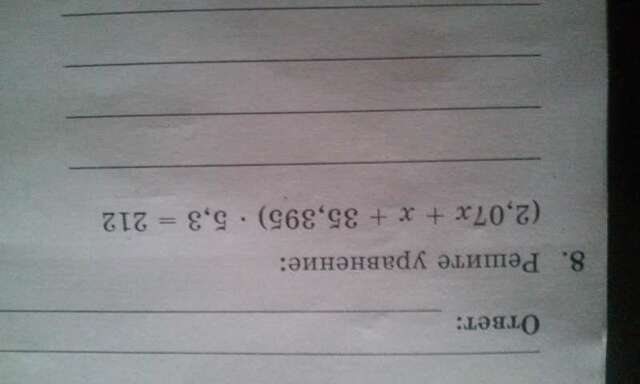 Ответ:
8. Решите уравнение:
(2,07x + x + 35,395) · 5,3 = 212